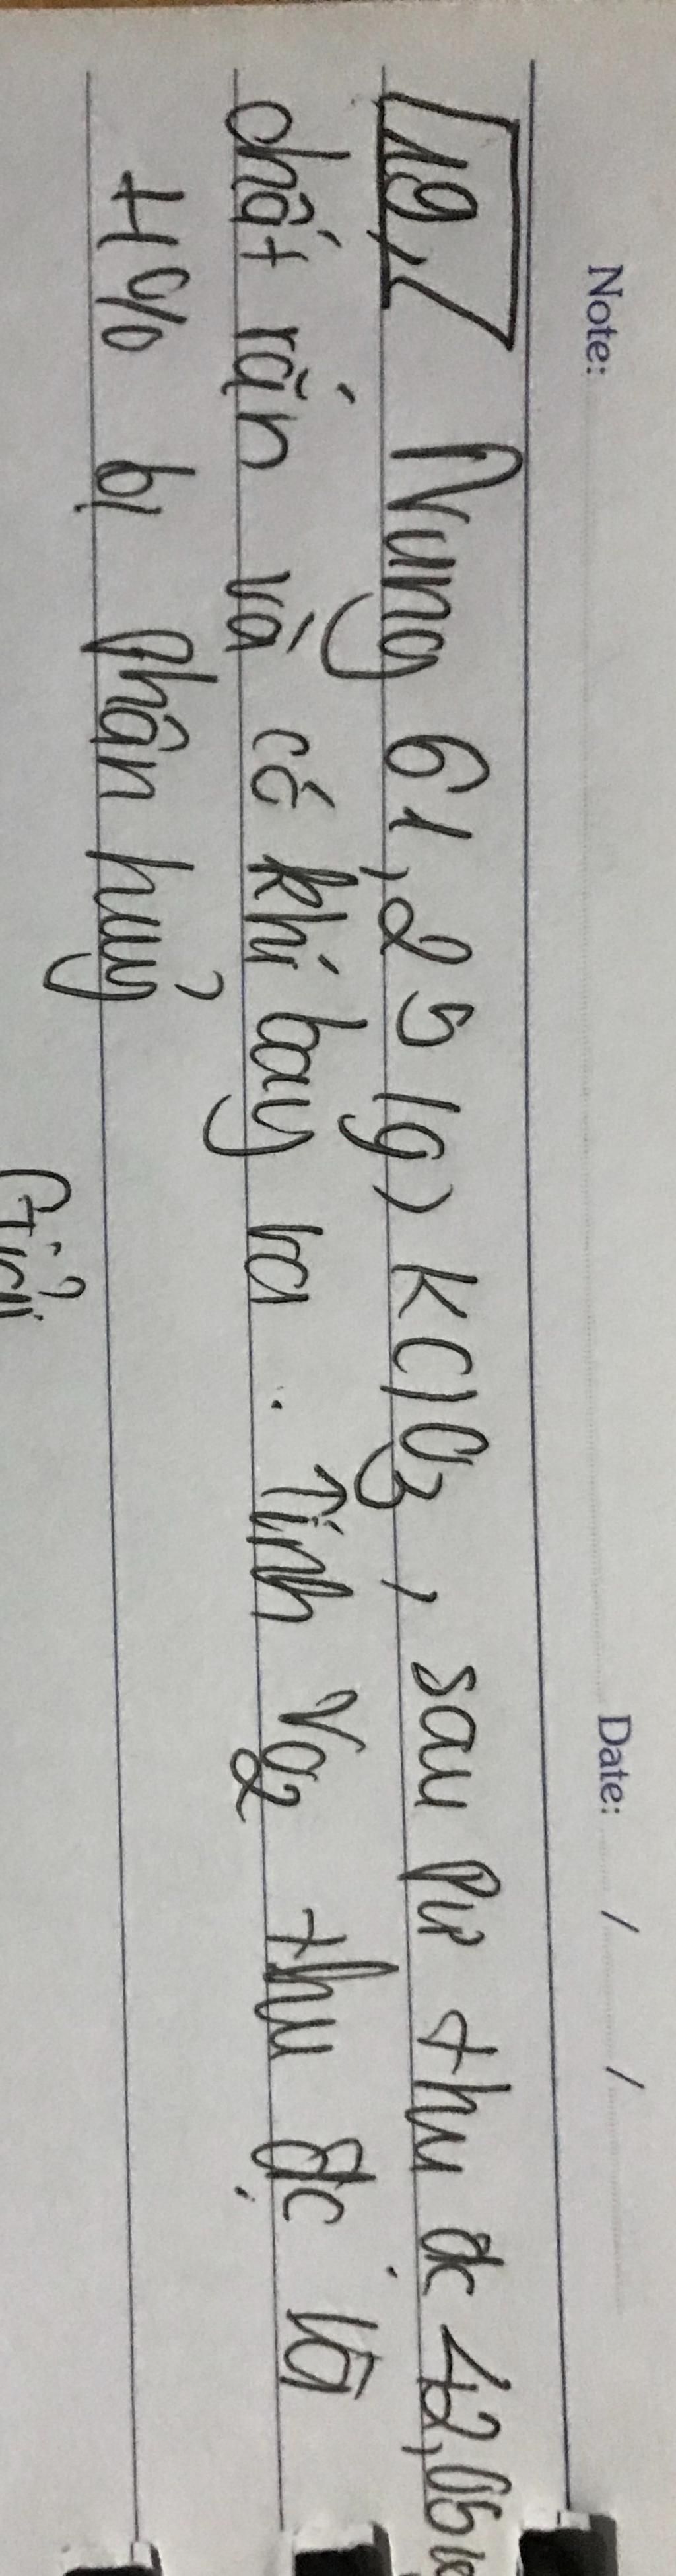 Note: Date: / /
19, Nung 61,25 (g) KClO3, sau pư thu đc 42,05
chất rắn và có khí bay ra. Tính VO2 thu đc và
H% bị phân huỷ
Giải